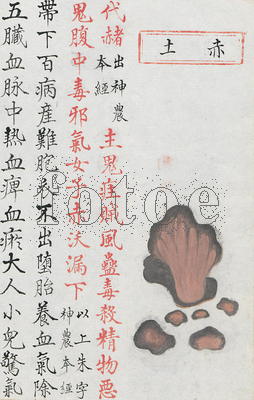 赤土
代赭出神農本經主鬼疰賊風蠱毒殺精物惡
鬼腹中毒邪氣女子赤沃漏下以上朱字神農本經
帶下百病產難胞衣不出墮胎養血氣除
五臟血脉中熱血痺血瘀大人小兒驚氣
fotoe